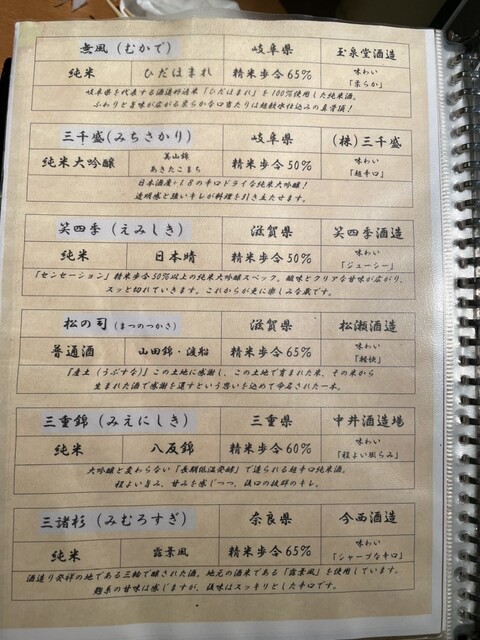 無風(むかで) 岐阜県 玉泉堂酒造
純米 ひだほまれ 精米歩合65% 味わい「柔らか」
岐阜県を代表する酒造好適米「ひだほまれ」を100%使用した純米酒。
ふわりと旨味が広がる柔らかな口当たりは超軟水仕込みの真骨頂!
三千盛(みちさかり) 岐阜県 (株)三千盛
純米大吟醸 美山錦 あきたこまち 精米歩合50% 味わい「超辛口」
日本酒度+18の辛口ドライな純米大吟醸!
透明感と強いキレが料理を引き立たせます。
笑四季(えみしき) 滋賀県 笑四季酒造
純米 日本晴 精米歩合50% 味わい「ジューシー」
「センセーション」精米歩合50%以上の純米大吟醸スペック。酸味とクリアな甘味が広がり、
スッと切れていきます。これからが更に楽しみな蔵です。
松の司(まつのつかさ) 滋賀県 松瀬酒造
普通酒 山田錦・渡船 精米歩合65% 味わい「軽快」
「産土(うぶすな)」この土地に感謝し、この土地で育まれた米、その米から
生まれた酒で感謝を還すという思いを込めて命名された一本。
三重錦(みえにしき) 三重県 中井酒造場
純米 八反錦 精米歩合60% 味わい「程よい膨らみ」
大吟醸と変わらない「長期低温発酵」で造られる超辛口純米酒。
程よい旨み、甘みを感じつつ、後口の抜群のキレ。
三諸杉(みむろすぎ) 奈良県 今西酒造
純米 露葉風 精米歩合65% 味わい「シャープな辛口」
酒造り発祥の地である三輪で醸された酒。地元の酒米である「露葉風」を使用しています。
麹系の甘味は感じますが、後味はスッキリとした辛口です。